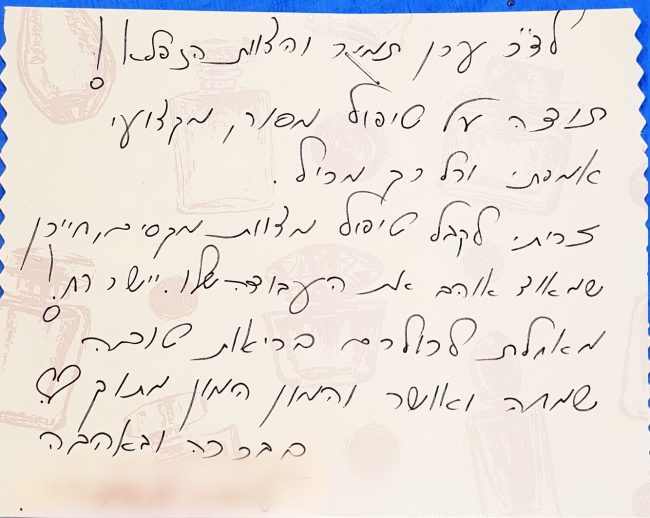 לד"ר ערן תמיר והצוות הנפלא!
תודה על טיפול מסור, מקצועי
אמפתי וכל כך מכיל.
זכיתי לקבל טיפול מצוות מקסים, חייכן
שמאוד אוהב את העבודה שלו. יישר כח!
מאחלת לכולכם בריאות טובה
שמחה ואושר והמון המון מתוק ♡
בברכה ובאהבה